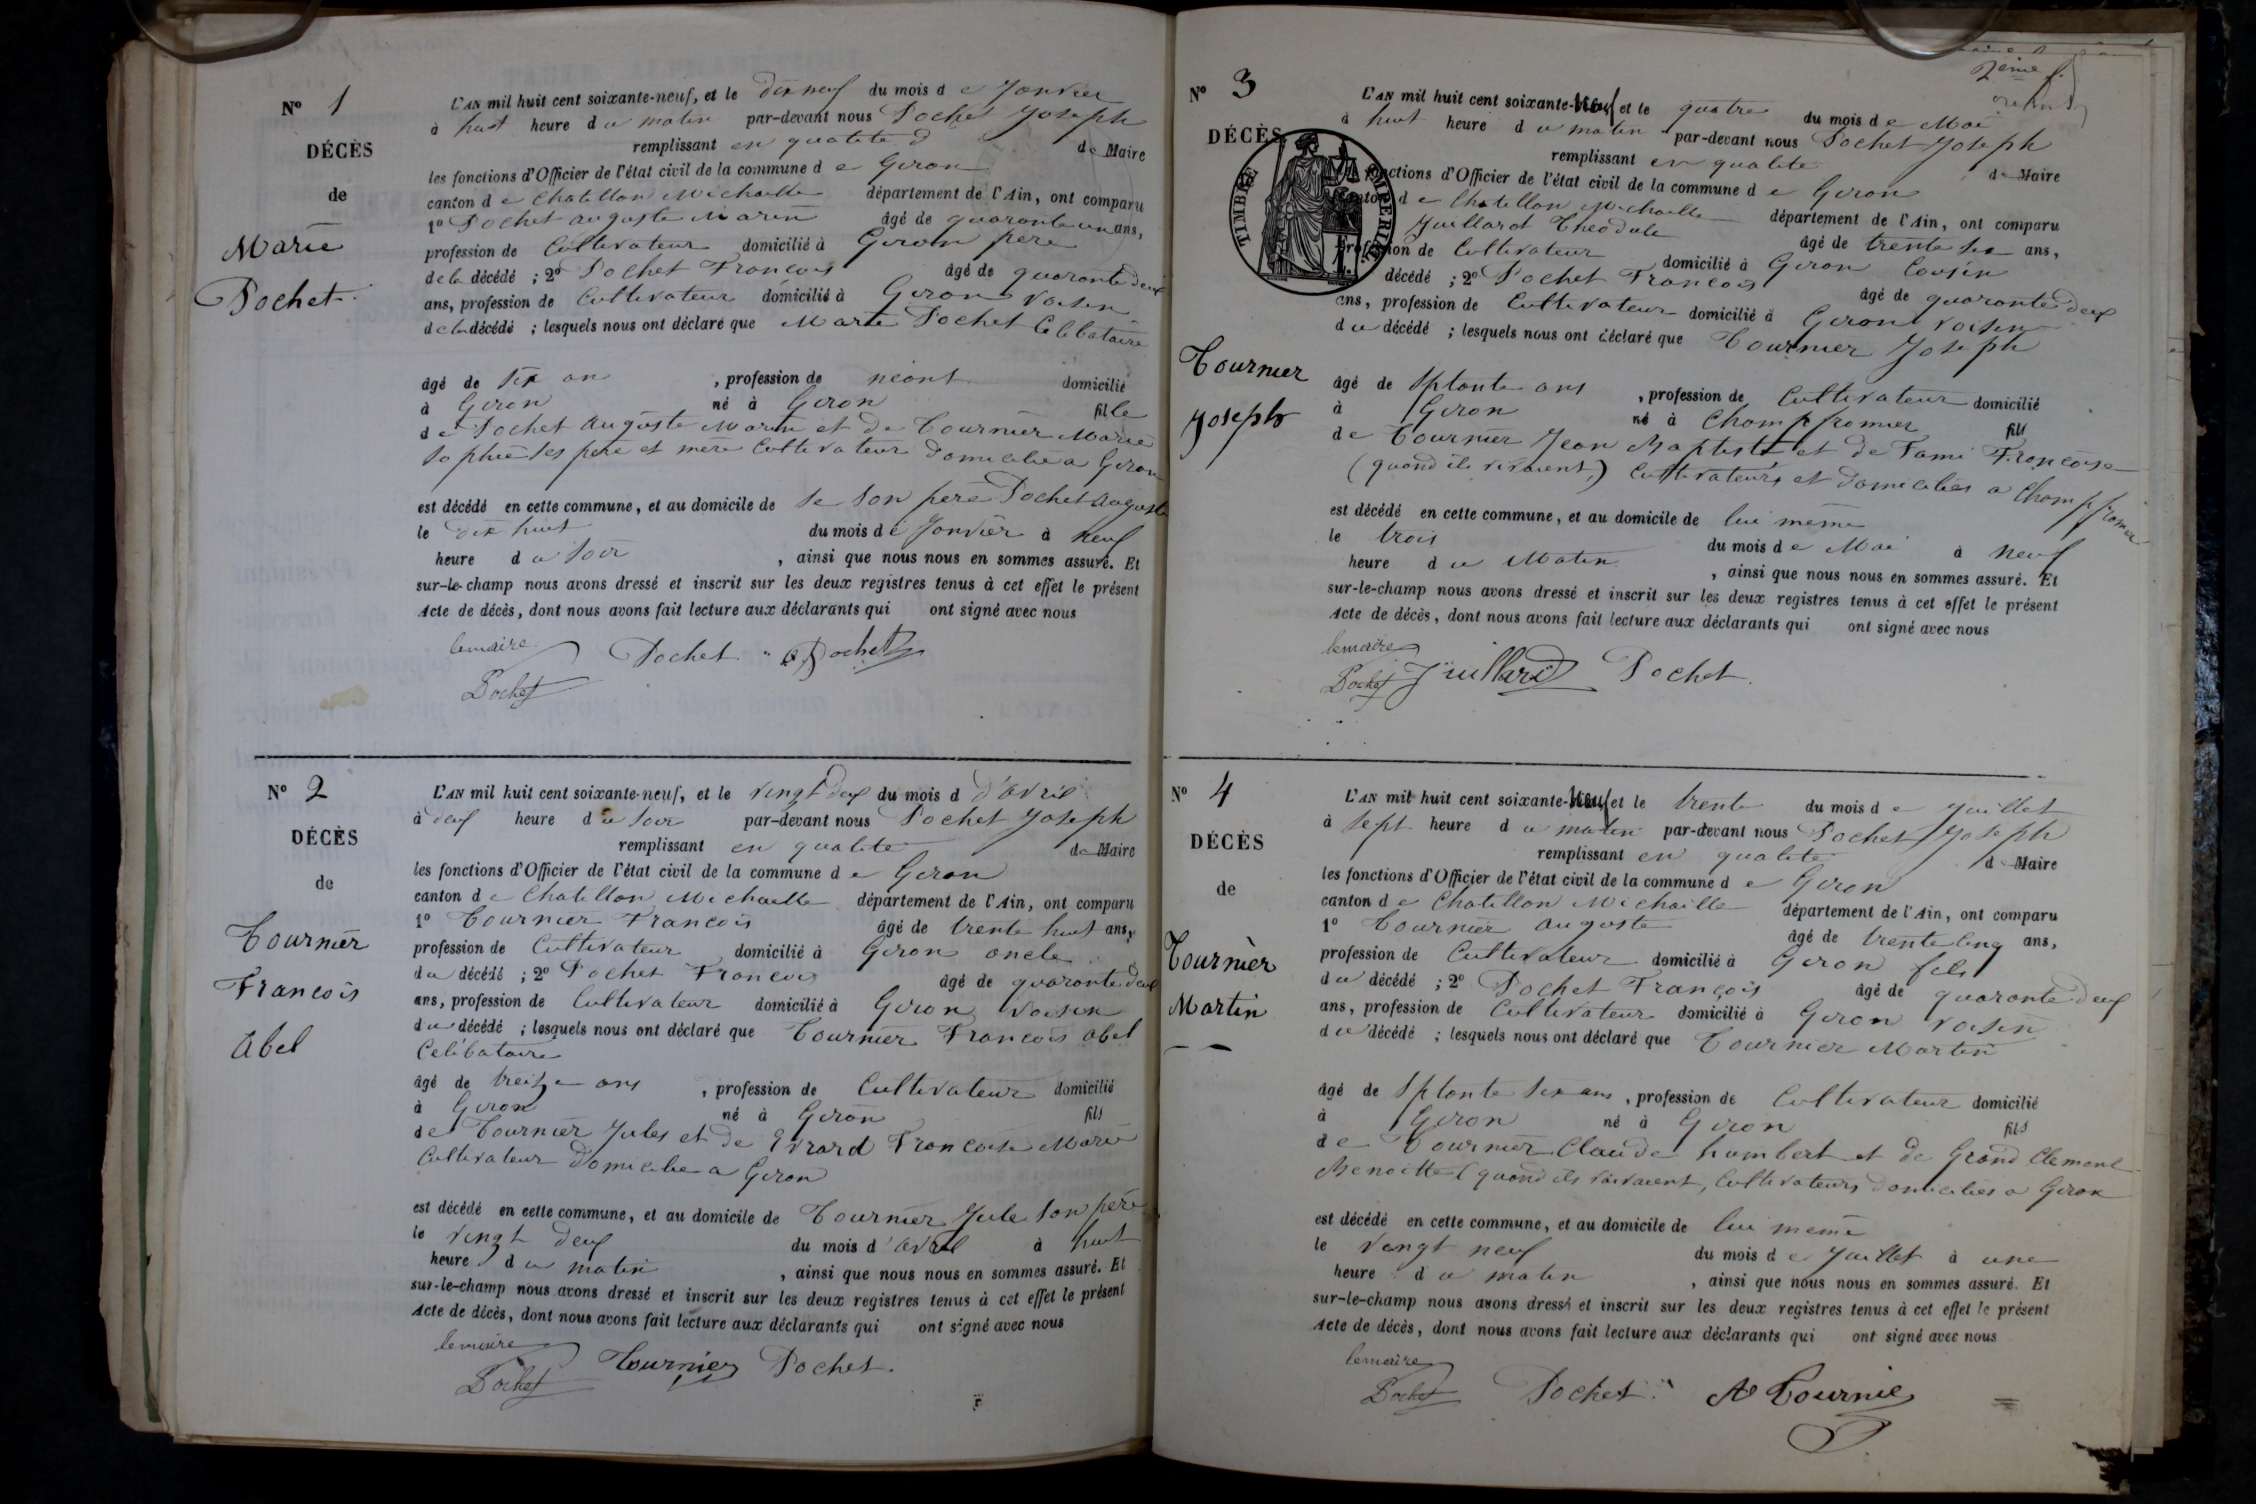 N° 1
DÉCÈS
de
Marie
Pochet
L'AN mil huit cent soixante-neuf, et le dix neuf du mois de Janvier
à huit heure du matin par-devant nous Pochet Joseph
remplissant en qualité d de Maire
les fonctions d'Officier de l'état civil de la commune de Giron
canton de Chatillon Michaille département de l'Ain, ont comparu
1° Pochet auguste Marin âgé de quarante un ans,
profession de Cultivateur domicilié à Giron pere
de la décédé ; 2° Pochet Francois âgé de quarante deux
ans, profession de Cultivateur domicilié à Giron voisin
de la décédé ; lesquels nous ont déclaré que Marie Pochet Celibataire
âgé de six an , profession de néant domicilié
à Giron né à Giron fille
de Pochet Auguste Marin et de Tournier Marie
Sophie ses père et mère Cultivateur domicilié a Giron
est décédé en cette commune, et au domicile de de son père Pochet Auguste
le dix huit du mois de Janvier à neuf
heure du soir , ainsi que nous nous en sommes assuré. Et
sur-le-champ nous avons dressé et inscrit sur les deux registres tenus à cet effet le présent
Acte de décès, dont nous avons fait lecture aux déclarants qui ont signé avec nous
lemaire
Pochet Pochet
Pochet
N° 2
DÉCÈS
de
Tournier
Francois
Abel
L'AN mil huit cent soixante-neuf, et le vingt deux du mois d d'avril
à deux heure du soir par-devant nous Pochet Joseph
remplissant en qualité de Maire
les fonctions d'Officier de l'état civil de la commune de Giron
canton de Chatillon Michaille département de l'Ain, ont comparu
1° Tournier Francois âgé de trente huit ans,
profession de Cultivateur domicilié à Giron oncle
du décédé ; 2° Pochet Francois âgé de quarante deux
ans, profession de Cultivateur domicilié à Giron voisin
du décédé ; lesquels nous ont déclaré que Tournier Francois abel
Celibataire
âgé de treize ans , profession de Cultivateur domicilié
à Giron né à Giron fils
de Tournier Jules et de Evrard Francoise Marie
Cultivateur domicilie a Giron
est décédé en cette commune, et au domicile de Tournier Jule son père
le vingt deux du mois d'avril à huit
heure du matin , ainsi que nous nous en sommes assuré. Et
sur-le-champ nous avons dressé et inscrit sur les deux registres tenus à cet effet le présent
Acte de décès, dont nous avons fait lecture aux déclarants qui ont signé avec nous
lemaire
Pochet Tournier Pochet
N° 3
DÉCÈS
TIMBRE IMPÉRIAL
Tournier
Joseph
2ème
L'AN mil huit cent soixante-neuf et le quatre du mois de Mai
à huit heure du matin par-devant nous Pochet Joseph
remplissant en qualité de Maire
fonctions d'Officier de l'état civil de la commune de Giron
canton de Chatillon Michaille département de l'Ain, ont comparu
Juillard Theodule âgé de trente six ans,
profession de Cultivateur domicilié à Giron Cousin
décédé ; 2° Pochet Francois âgé de quarante deux
ans, profession de Cultivateur domicilié à Giron voisin
du décédé ; lesquels nous ont déclaré que Tournier Joseph
âgé de Sptante ans , profession de Cultivateur domicilié
à Giron né à Champfromier fils
de Tournier Jean Baptiste et de Famé Francoise
(quand ils vivaient) Cultivateurs et domiciliés a Champfromier
est décédé en cette commune, et au domicile de lui même
le trois du mois de Mai à neuf
heure du Matin , ainsi que nous nous en sommes assuré. Et
sur-le-champ nous avons dressé et inscrit sur les deux registres tenus à cet effet le présent
Acte de décès, dont nous avons fait lecture aux déclarants qui ont signé avec nous
lemaire
Pochet Juillard Pochet
N° 4
DÉCÈS
de
Tournier
Martin
L'AN mil huit cent soixante-neuf et le trente du mois de Juillet
à sept heure du matin par-devant nous Pochet Joseph
remplissant en qualité d Maire
les fonctions d'Officier de l'état civil de la commune de Giron
canton de Chatillon Michaille département de l'Ain, ont comparu
1° Tournier auguste âgé de trente cinq ans,
profession de Cultivateur domicilié à Giron fils
du décédé ; 2° Pochet François âgé de quarante deux
ans, profession de Cultivateur domicilié à Giron voisin
du décédé ; lesquels nous ont déclaré que Tournier Martin
âgé de Sptante six ans , profession de Cultivateur domicilié
à Giron né à Giron fils
de Tournier Claude humbert et de Grand Clement
Benoitte (quand ils vivaient, Cultivateurs domiciliés a Giron
est décédé en cette commune, et au domicile de lui même
le vingt neuf du mois de Juillet à une
heure du matin , ainsi que nous nous en sommes assuré. Et
sur-le-champ nous avons dressé et inscrit sur les deux registres tenus à cet effet le présent
Acte de décès, dont nous avons fait lecture aux déclarants qui ont signé avec nous
lemaire
Pochet Pochet A Tournier